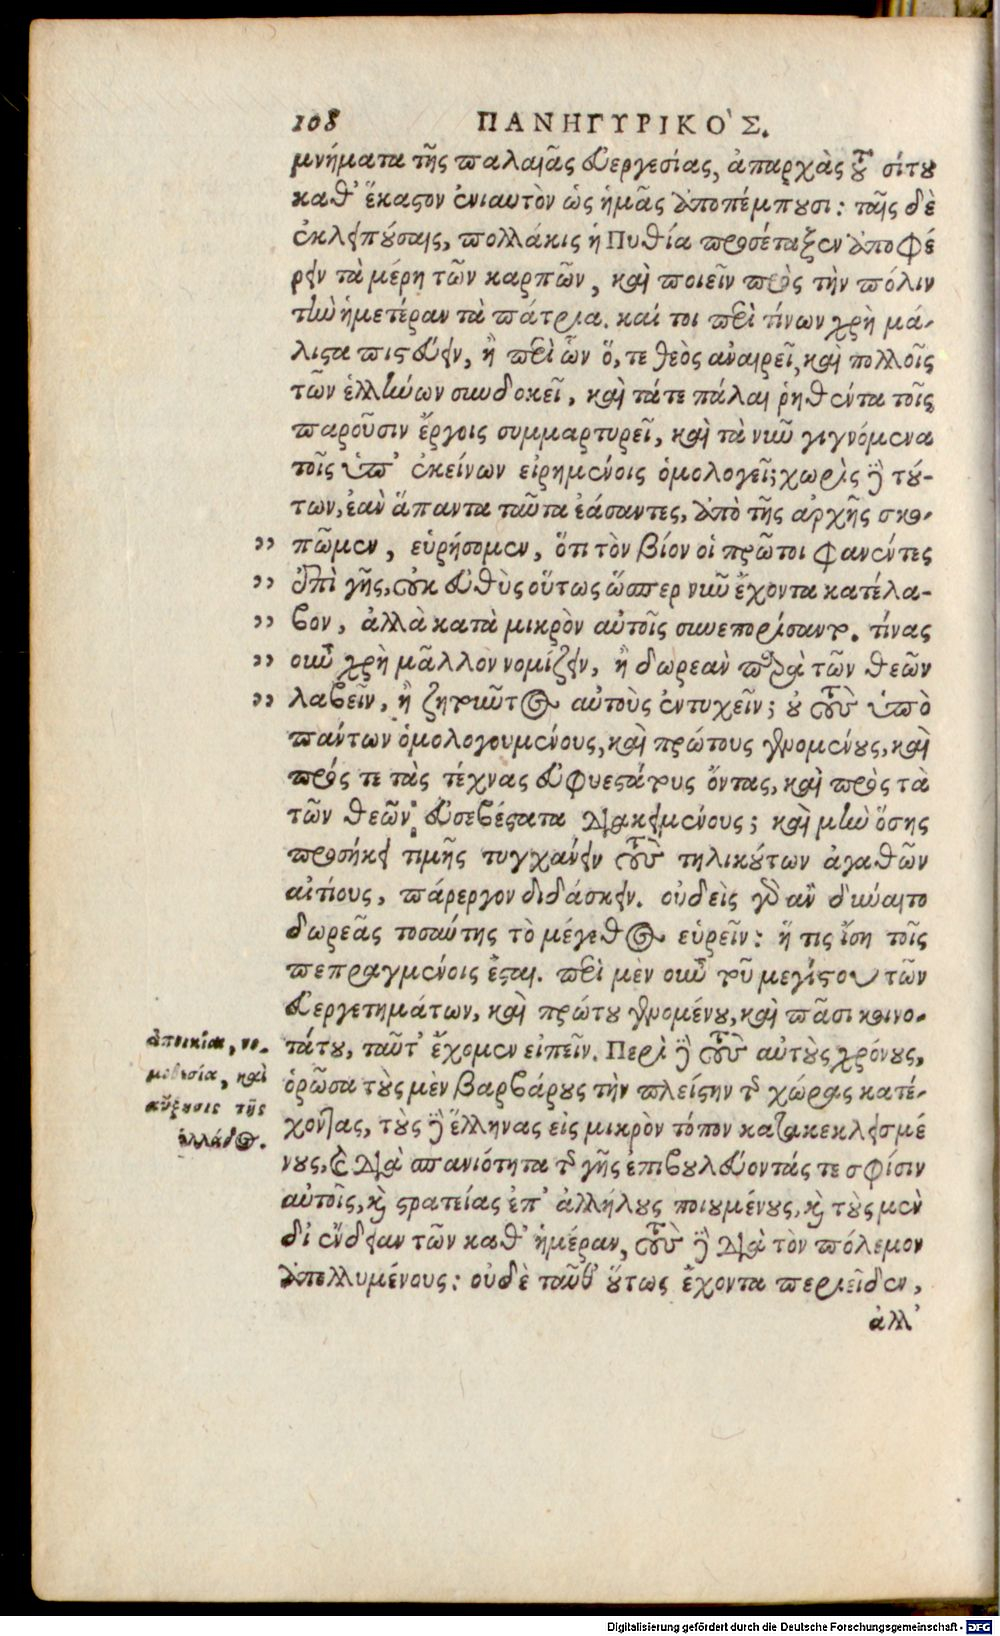 108 ΠΑΝΗΓΥΡΙΚΟ'Σ.
μνήματα τῆς παλαιᾶς εὐεργεσίας, ἀπαρχὰς τοῦ σίτου
καθ' ἕκαστον ἐνιαυτὸν ὡς ἡμᾶς ἀποπέμπουσι: ταῖς δὲ
ἐκλειπούσαις, πολλάκις ἡ Πυθία προσέταξεν ἀποφέ
ρειν τὰ μέρη τῶν καρπῶν, καὶ ποιεῖν πρὸς τὴν πόλιν
τὴν ἡμετέραν τὰ πάτρια. καί τοι περὶ τίνων χρὴ μά-
λιστα πιστεύειν, ἢ περὶ ὧν ὅ, τε θεὸς ἀναιρεῖ, καὶ πολλοῖς
τῶν ἑλλήνων συνδοκεῖ, καὶ τά τε πάλαι ῥηθέντα τοῖς
παροῦσιν ἔργοις συμμαρτυρεῖ, καὶ τὰ νῦν γιγνόμενα
τοῖς ὑπ' ἐκείνων εἰρημένοις ὁμολογεῖ; χωρὶς δὲ τού-
των, ἐὰν ἅπαντα ταῦτα ἐάσαντες, ἀπὸ τῆς ἀρχῆς σκο-
" πῶμεν, εὑρήσομεν, ὅτι τὸν βίον οἱ πρῶτοι φανέντες
" ἐπὶ γῆς, οὐκ εὐθὺς οὕτως ὥσπερ νῦν ἔχοντα κατέλα-
" βον, ἀλλὰ κατὰ μικρὸν αὐτοῖς συνεπορίσαντο. τίνας
" οὖν χρὴ μᾶλλον νομίζειν, ἢ δωρεὰν παρὰ τῶν θεῶν
" λαβεῖν, ἢ ζητοῦντας αὐτοὺς ἐντυχεῖν; οὐ τοὺς ὑπὸ
πάντων ὁμολογουμένους, καὶ πρώτους γενομένους, καὶ
πρός τε τὰς τέχνας εὐφυεστάτους ὄντας, καὶ πρὸς τὰ
τῶν θεῶν εὐσεβέστατα διακειμένους; καὶ μὴν ὅσης
προσήκει τιμῆς τυγχάνειν τοὺς τηλικούτων ἀγαθῶν
αἰτίους, πάρεργον διδάσκειν. οὐδεὶς γὰρ ἂν δύναιτο
δωρεᾶς τοσαύτης τὸ μέγεθος εὑρεῖν: ἥ τις ἴση τοῖς
πεπραγμένοις ἔσται. περὶ μὲν οὖν τοῦ μεγίστου τῶν
εὐεργετημάτων, καὶ πρώτου γενομένου, καὶ πᾶσι κοινο-
τάτου, ταῦτ' ἔχομεν εἰπεῖν. Περὶ δὲ τοὺς αὐτοὺς χρόνους,
ὁρῶσα τοὺς μὲν βαρβάρους τὴν πλείστην τῆς χώρας κατέ-
χοντας, τοὺς δὲ ἕλληνας εἰς μικρὸν τόπον κατακεκλεισμέ
νους, καὶ διὰ σπανιότητα τῆς γῆς ἐπιβουλεύοντάς τε σφίσιν
αὐτοῖς, καὶ στρατείας ἐπ' ἀλλήλους ποιουμένους, καὶ τοὺς μὲν
δι ἔνδειαν τῶν καθ' ἡμέραν, τοὺς δὲ διὰ τὸν πόλεμον
ἀπολλυμένους: οὐδὲ ταῦθ' οὕτως ἔχοντα περιεῖδεν,
ἀλλ'
ἀποικία, νο-
μοθεσία, καὶ
αὔξησις τῆς
ἑλλάδος.
Digitalisierung gefördert durch die Deutsche Forschungsgemeinschaft - DFG